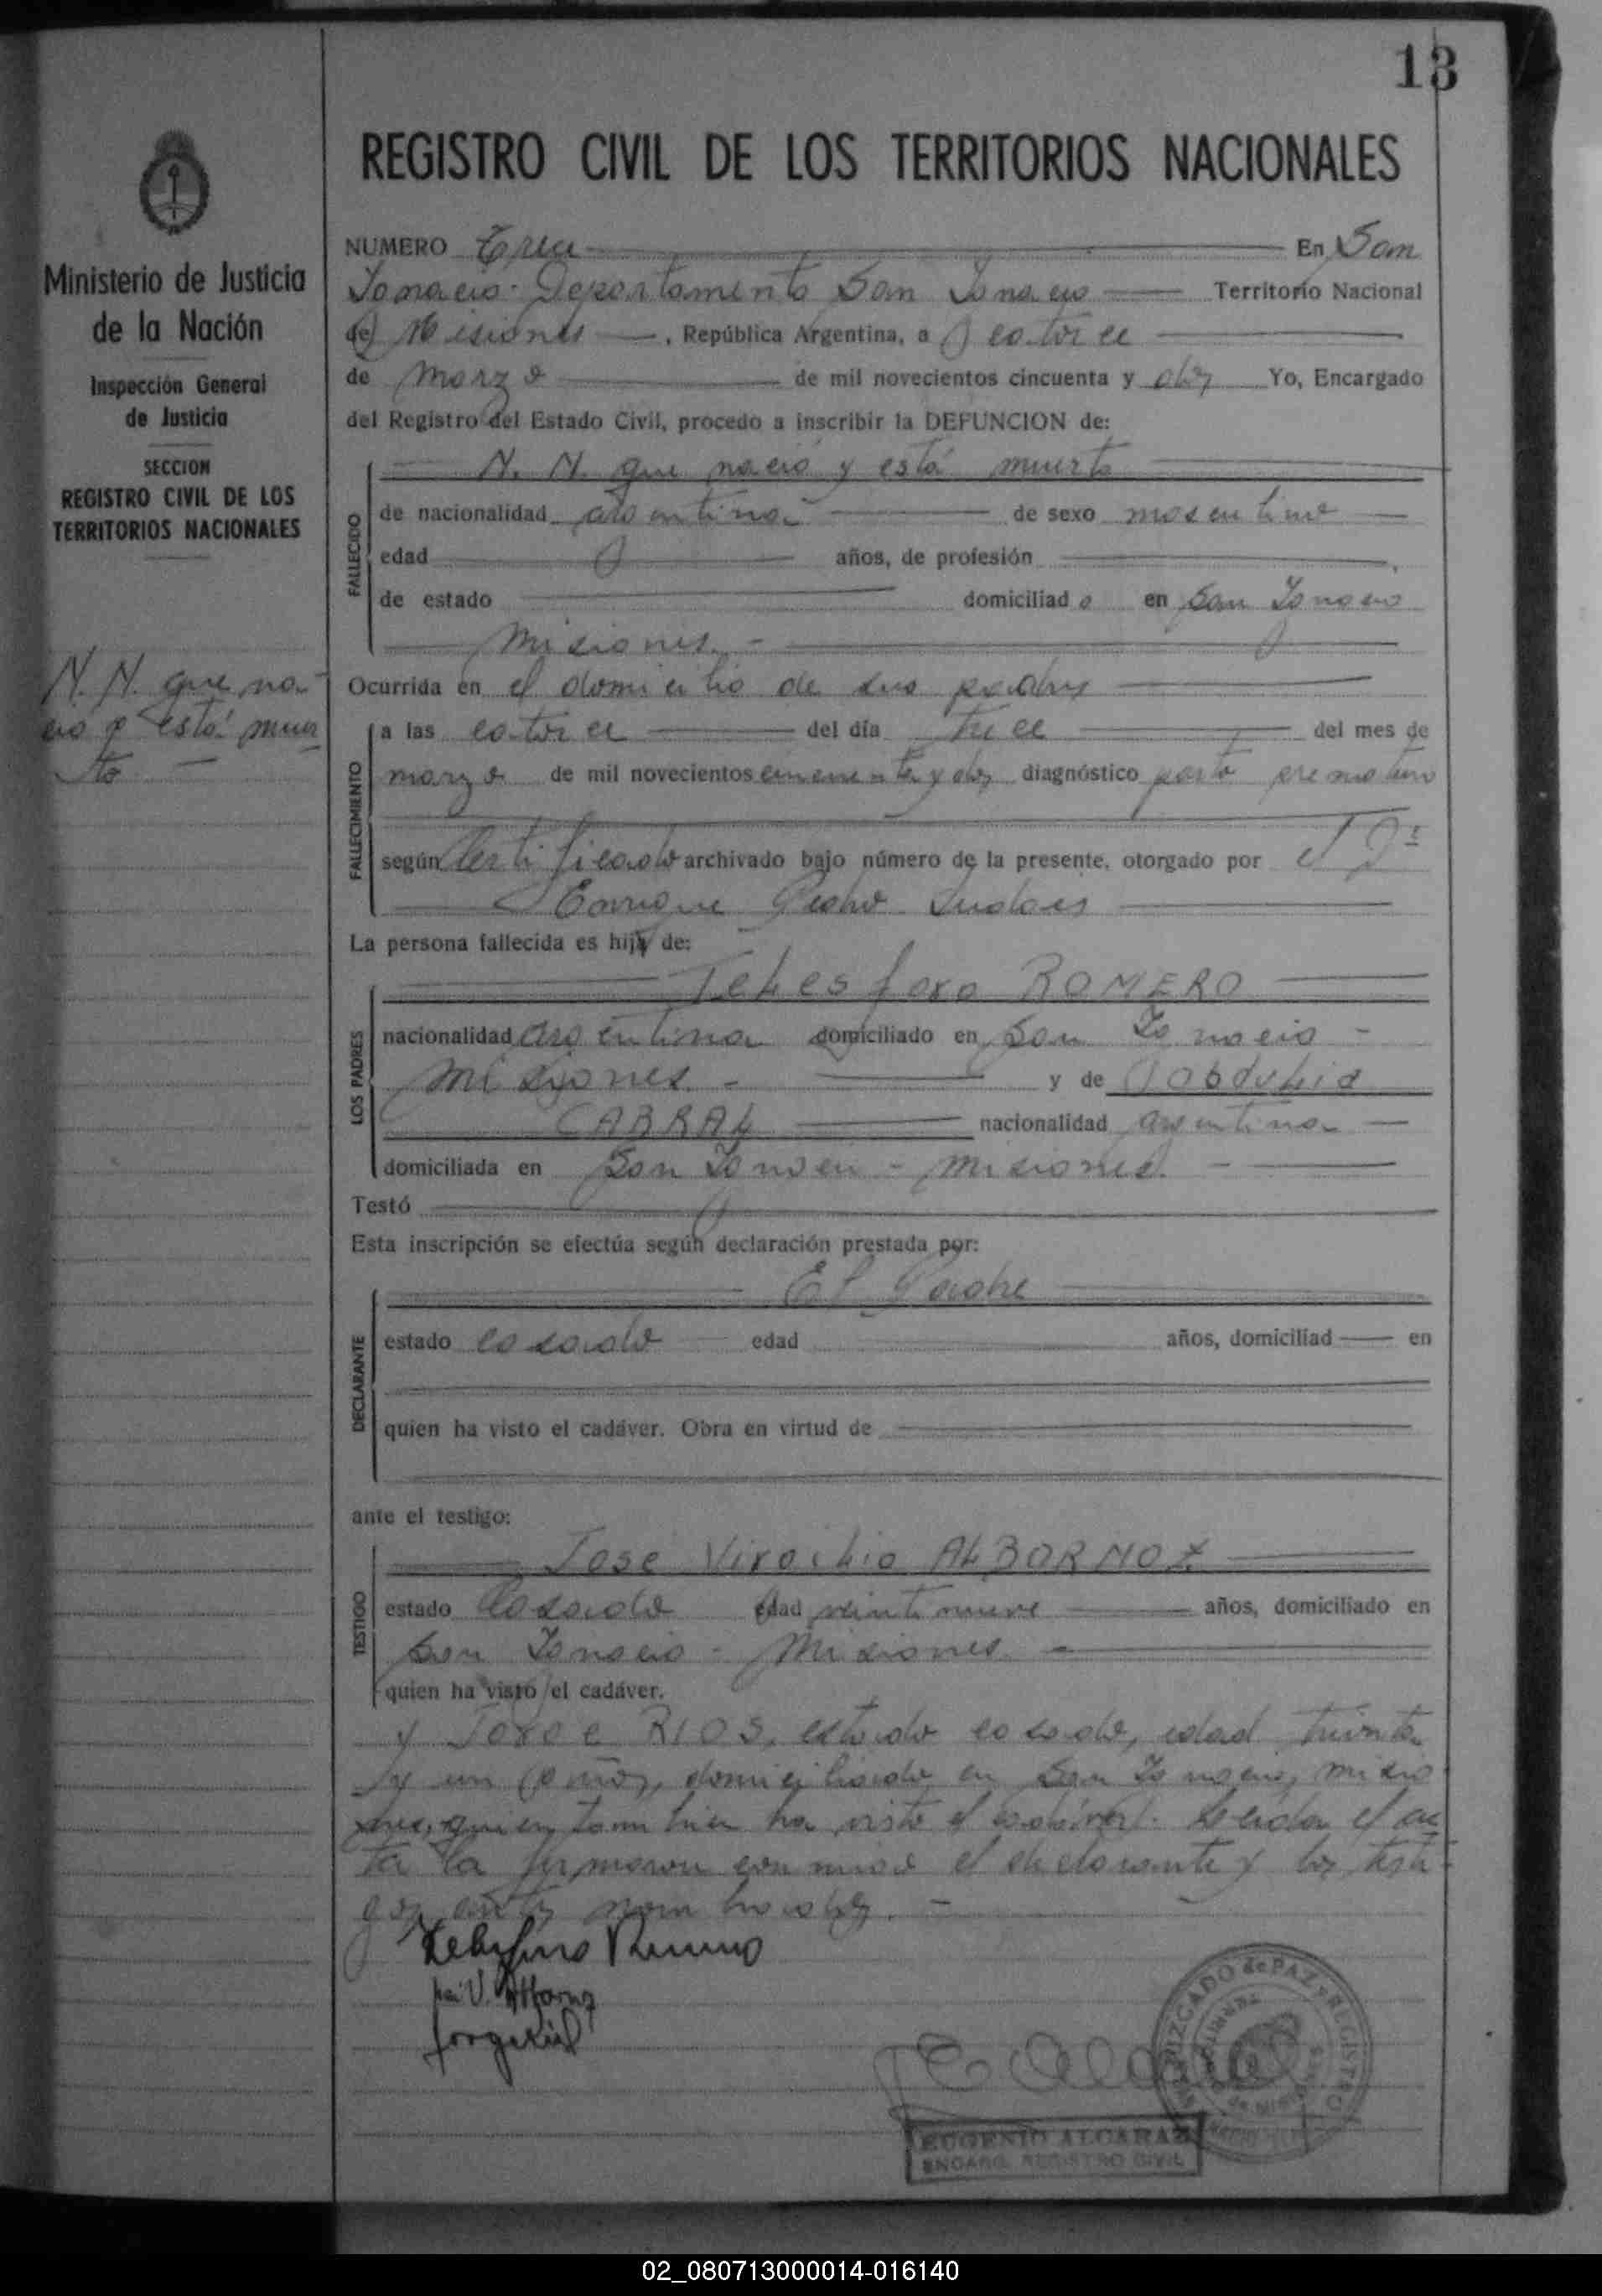 13
REGISTRO CIVIL DE LOS TERRITORIOS NACIONALES
Ministerio de Justicia
de la Nación
Inspección General
de Justicia
SECCION
REGISTRO CIVIL DE LOS
TERRITORIOS NACIONALES
N. N. que na-
ció y está muer
to
NUMERO En San
Ignacio - Departamento San Ignacio Territorio Nacional
de Misiones, República Argentina, a catorce
de marzo de mil novecientos cincuenta y dos Yo, Encargado
del Registro del Estado Civil, procedo a inscribir la DEFUNCION de:
N. N. que nació y está muerto
FALLECIDO
de nacionalidad argentina de sexo masculino
edad años, de profesión
de estado domiciliado en San Ignacio
Misiones. -
Ocurrida en el domicilio de sus padres
FALLECIMIENTO
a las catorce del día trece del mes de
marzo de mil novecientos cincuenta y dos diagnóstico parto prematuro
según Certificado archivado bajo número de la presente, otorgado por el Dr
Enrique Pedro
La persona fallecida es hijo de:
LOS PADRES
Telesforo ROMERO
nacionalidad argentina domiciliado en San Ignacio -
Misiones. - y de
CABRAL nacionalidad argentina
domiciliada en San Ignacio - Misiones. -
Testó
Esta inscripción se efectúa según declaración prestada por:
DECLARANTE
El Padre
estado casado edad años, domiciliad en
quien ha visto el cadáver. Obra en virtud de
ante el testigo:
TESTIGO
Jose Virgilio ALBORNOZ
estado Casado edad veintinueve años, domiciliado en
San Ignacio - Misiones. -
quien ha visto el cadáver.
y Jorge RIOS, estado casado, edad treinta
y un años, domiciliado en San Ignacio, Misio
nes, quien tambien ha visto el cadáver. Leida el ac
ta la firmaron con migo el declarante y los testi-
gos antes nombrados. -
Telesforo Romero
José V. Albornoz
Jorge Rios
JUZGADO de PAZ y REGISTRO
EUGENIO ALCARAZ
ENCARG. REGISTRO CIVIL
02_080713000014-016140